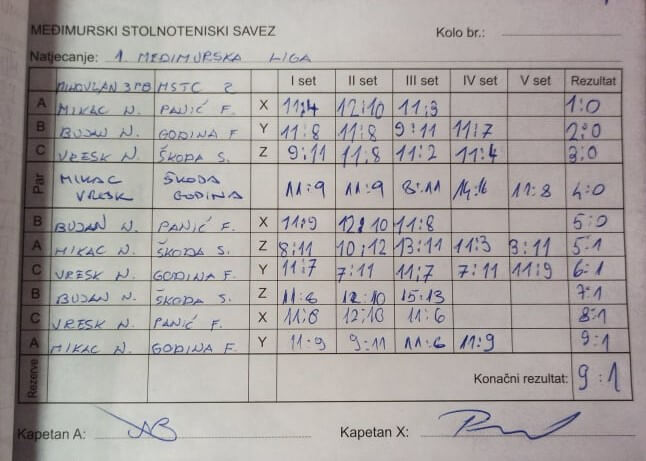 MEĐIMURSKI STOLNOTENISKI SAVEZ
Kolo br.:
Natjecanje: 1. MEĐIMURSKA LIGA
MSTC 2 I set II set III set IV set V set Rezultat
A MIKAC N. PANIĆ F. X 11:4 12:10 11:3 1:0
B BUJAN N. GODINA F Y 11:8 11:8 9:11 11:7 2:0
C VRESK N. ŠKODA S. Z 9:11 11:8 11:2 11:4 3:0
Par MIKAC ŠKODA 11:9 11:9 8:11 14:16 11:8 4:0
VRESK GODINA
B BUJAN N. PANIĆ F. X 11:9 12:10 11:8 5:0
A MIKAC N. ŠKODA S. Z 8:11 10:12 13:11 11:3 3:11 5:1
C VRESK N. GODINA F. Y 11:7 7:11 11:7 7:11 11:9 6:1
B BUJAN N. ŠKODA S. Z 11:6 12:10 15:13 7:1
C VRESK N. PANIĆ F. X 11:8 12:10 11:6 8:1
A MIKAC N. GODINA F. Y 11:9 9:11 11:6 11:9 9:1
Rezerve Konačni rezultat: 9:1
Kapetan A: Kapetan X: